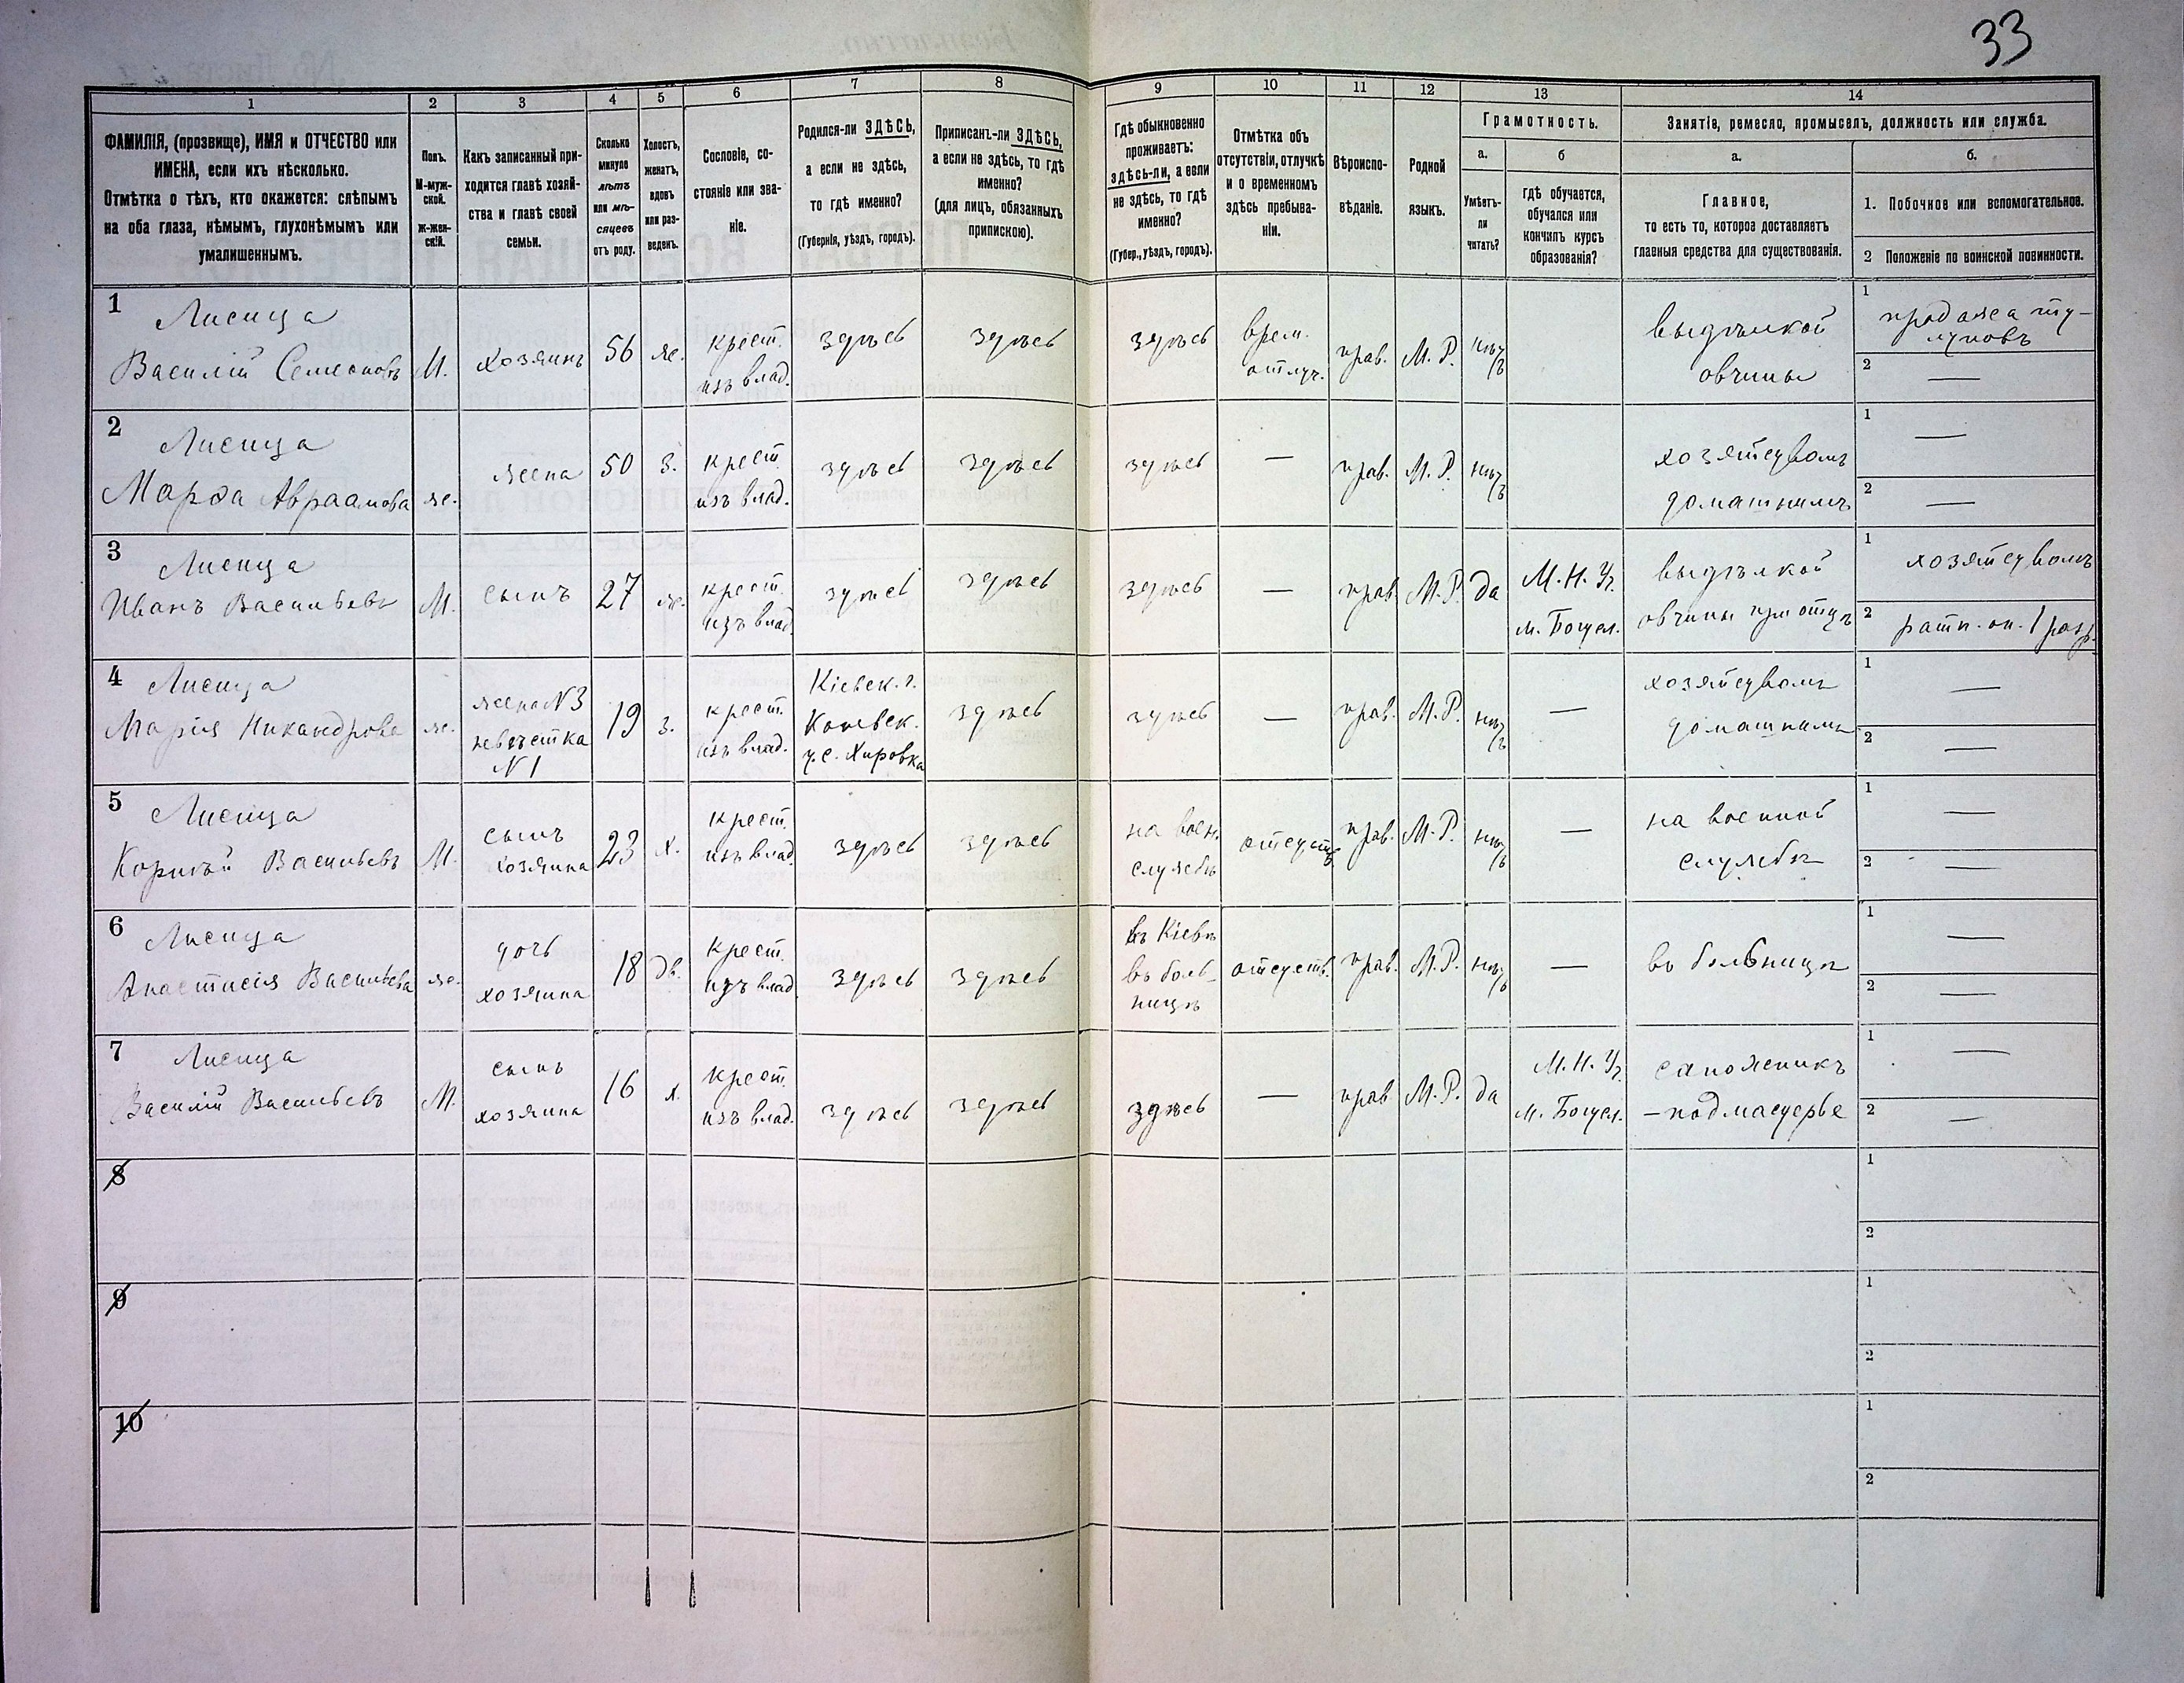 33
1 2 3 4 5 6 7 8 9 10 11 12 13 14
ФАМИЛІЯ, (прозвище), ИМЯ и ОТЧЕСТВО или
ИМЕНА, если ихъ нѣсколько.
Отмѣтка о тѣхъ, кто окажется: слѣпымъ
на оба глаза, нѣмымъ, глухонѣмымъ или
умалишеннымъ.
Полъ.
М-муж-
ской.
ж-жен-
скій.
Какъ записанный при-
ходится главѣ хозяй-
ства и главѣ своей
семьи.
Сколько
минуло
лѣтъ
или мѣ-
сяцевъ
отъ роду.
Холостъ,
женатъ,
вдовъ
или раз-
веденъ.
Сословіе, со-
стояніе или зва-
ніе.
Родился-ли ЗДѢСЬ,
а если не здѣсь,
то гдѣ именно?
(Губернія, уѣздъ, городъ).
Приписанъ-ли ЗДѢСЬ,
а если не здѣсь, то гдѣ
именно?
(для лицъ, обязанныхъ
припискою).
Гдѣ обыкновенно
проживаетъ:
здѣсь-ли, а если
не здѣсь, то гдѣ
именно?
(Губер., уѣздъ, городъ).
Отмѣтка объ
отсутствіи, отлучкѣ
и о временномъ
здѣсь пребыва-
ніи.
Вѣроиспо-
вѣданіе.
Родной
языкъ.
Грамотность.
а.
Умѣетъ-
ли
читать?
б
гдѣ обучается,
обучался или
кончилъ курсъ
образованія?
Занятіе, ремесло, промыселъ, должность или служба.
а.
Главное,
то есть то, которое доставляетъ
главныя средства для существованія.
б.
1. Побочное или вспомогательное.
2 Положеніе по воинской повинности.
1
Лисица
Василій Семеоновъ
М.
хозяинъ
56
же.
крест.
изъ влад.
здѣсь
здѣсь
здѣсь
врем.
отлуч.
прав.
М. Р.
нѣтъ
выдѣлкой
овчины
1 продажа ту-
луповъ
2 —
2
Лисица
Марѳа Авраамова
же.
жена
50
з.
крест.
изъ влад.
здѣсь
здѣсь
здѣсь
—
прав.
М. Р.
нѣтъ
хозяйствомъ
домашнимъ
1 —
2 —
3
Лисица
Иванъ Васильевъ
М.
сынъ
27
же.
крест.
изъ влад.
здѣсь
здѣсь
здѣсь
—
прав.
М. Р.
да
М. Н. Уч.
м. Богусл.
выдѣлкой
овчины при отцѣ
1 хозяйствомъ
2 ратн. оп. 1 разр.
4
Лисица
Марія Никандрова
же.
жена N 3
невѣстка
N 1
19
з.
крест.
изъ влад.
Кіевск. г.
Каневск.
у. с. Хировка
здѣсь
здѣсь
—
прав.
М. Р.
нѣтъ
—
хозяйствомъ
домашнимъ
1 —
2 —
5
Лисица
Корнѣй Васильевъ
М.
сынъ
хозяина
23
х.
крест.
изъ влад.
здѣсь
здѣсь
на воен.
службѣ
отсутств.
прав.
М. Р.
нѣтъ
—
на военной
службѣ
1 —
2 —
6
Лисица
Анастасія Васильева
же.
дочь
хозяина
18
дв.
крест.
изъ влад.
здѣсь
здѣсь
въ Кіевѣ
въ боль-
ницѣ
отсутств.
прав.
М. Р.
нѣтъ
—
въ больницѣ
1 —
2 —
7
Лисица
Василій Васильевъ
М.
сынъ
хозяина
16
х.
крест.
изъ влад.
здѣсь
здѣсь
здѣсь
—
прав
М. Р.
да
М. Н. Уч.
м. Богусл.
сапожникъ
-подмастерье
1 —
2 —
8
1
2
9
1
2
10
1
2